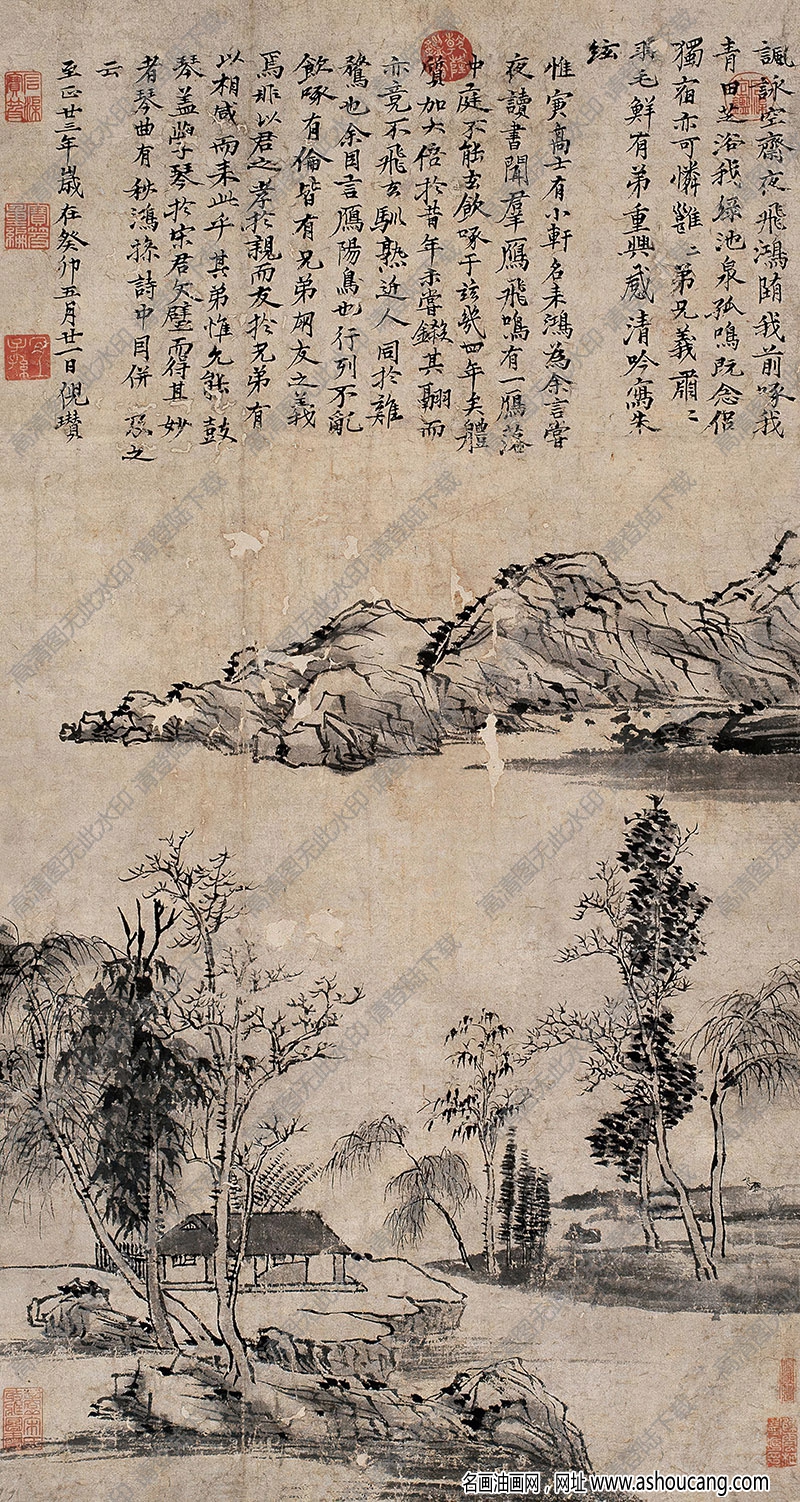 諷詠空齋夜飛鴻墮我前啄我
青田芝浴我綠池泉孤鳴既念侶
獨宿亦可憐雝〻弟兄義肅〻
羽毛鮮有弟重興感清吟寫朱
絃
惟寅高士有小軒名来鴻為余言嘗
夜讀書聞羣鴈飛鳴有一鴈落
中庭不能去飲啄于玆幾四年矣體
質加大倍於昔年未嘗鎩其翮而
亦竟不飛去馴熟近人同於雞
鶩也余因言鴈陽鳥也行列不亂
飲啄有倫皆有兄弟朋友之義
焉非以君之孝於親而友於兄弟有
以相感而来此乎其弟惟允能鼓
琴蓋學琴於宋君久歷而得其妙
者琴曲有秋鴻操詩中因併及之
云
至正廿三年歲在癸卯五月廿一日倪瓚
高清图无此水印 请登陆下载
名画油画网，网址 www.ashoucang.com